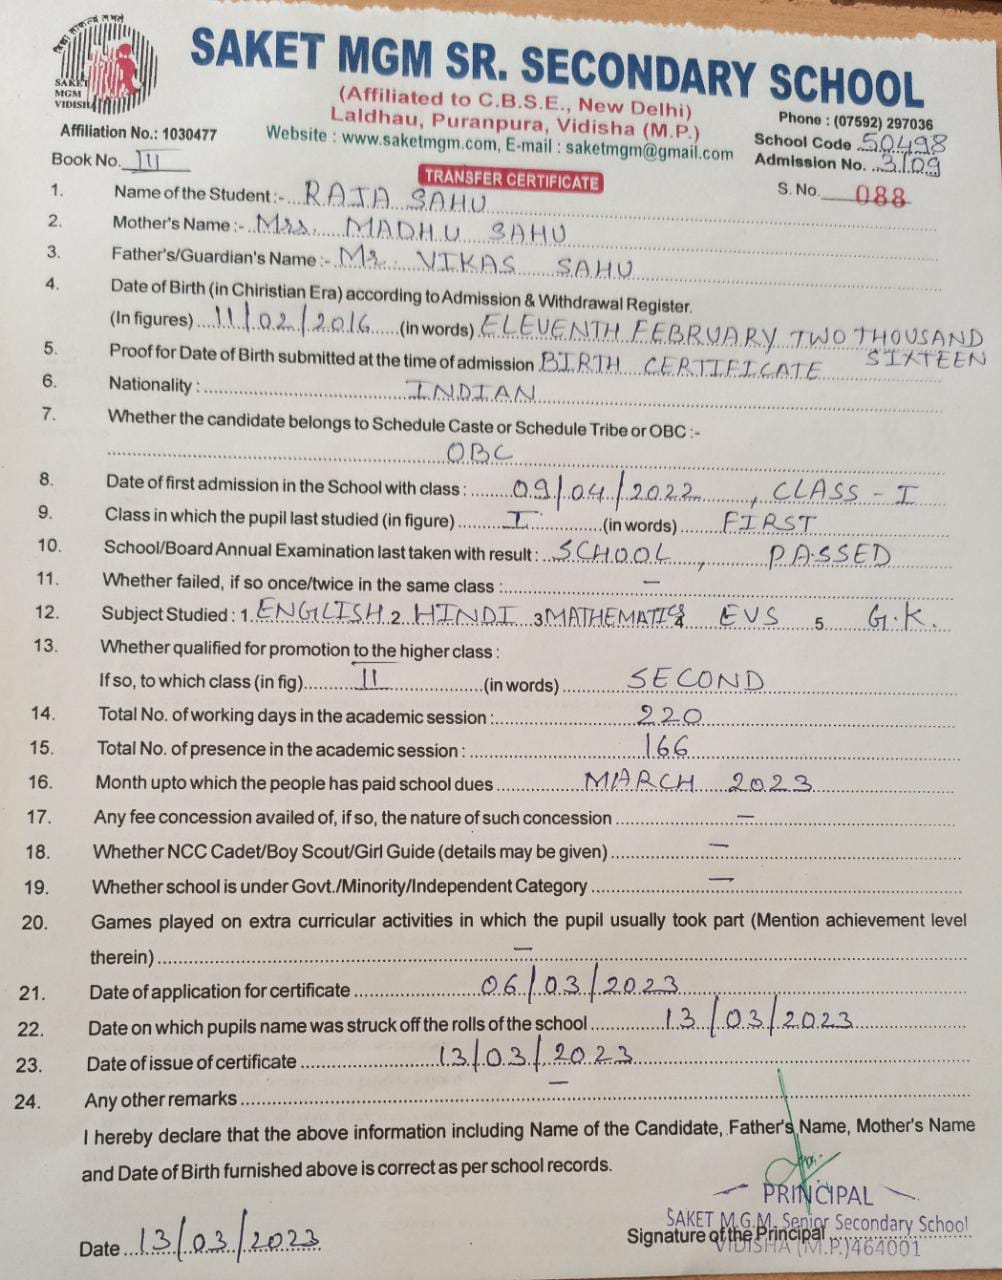 SAKET
MGM
VIDISHA
SAKET MGM SR. SECONDARY SCHOOL
(Affiliated to C.B.S.E., New Delhi)
Laldhau, Puranpura, Vidisha (M.P.)
Website : www.saketmgm.com, E-mail : saketmgm@gmail.com
Phone : (07592) 297036
School Code 50498
Admission No. 3109
Affiliation No.: 1030477
Book No. III
TRANSFER CERTIFICATE
S. No. 088
1. Name of the Student :- RAJA SAHU
2. Mother's Name :- Mrs. MADHU SAHU
3. Father's/Guardian's Name :- Mr. VIKAS SAHU
4. Date of Birth (in Chiristian Era) according to Admission & Withdrawal Register.
(In figures) 11/02/2016 (in words) ELEVENTH FEBRUARY TWO THOUSAND
SIXTEEN
5. Proof for Date of Birth submitted at the time of admission BIRTH CERTIFICATE
6. Nationality : INDIAN
7. Whether the candidate belongs to Schedule Caste or Schedule Tribe or OBC :-
OBC
8. Date of first admission in the School with class : 09/04/2022, CLASS - I
9. Class in which the pupil last studied (in figure) I (in words) FIRST
10. School/Board Annual Examination last taken with result : SCHOOL, PASSED
11. Whether failed, if so once/twice in the same class : —
12. Subject Studied : 1. ENGLISH 2. HINDI 3 MATHEMATICS 4 EVS 5 G.K.
13. Whether qualified for promotion to the higher class :
If so, to which class (in fig) II (in words) SECOND
14. Total No. of working days in the academic session : 220
15. Total No. of presence in the academic session : 166
16. Month upto which the people has paid school dues MARCH 2023
17. Any fee concession availed of, if so, the nature of such concession —
18. Whether NCC Cadet/Boy Scout/Girl Guide (details may be given) —
19. Whether school is under Govt./Minority/Independent Category —
20. Games played on extra curricular activities in which the pupil usually took part (Mention achievement level
therein) —
21. Date of application for certificate 06/03/2023
22. Date on which pupils name was struck off the rolls of the school 13/03/2023
23. Date of issue of certificate 13/03/2023
24. Any other remarks —
I hereby declare that the above information including Name of the Candidate, Father's Name, Mother's Name
and Date of Birth furnished above is correct as per school records.
PRINCIPAL
SAKET M.G.M. Senior Secondary School
Signature of the Principal
VIDISHA (M.P.) 464001
Date 13/03/2023